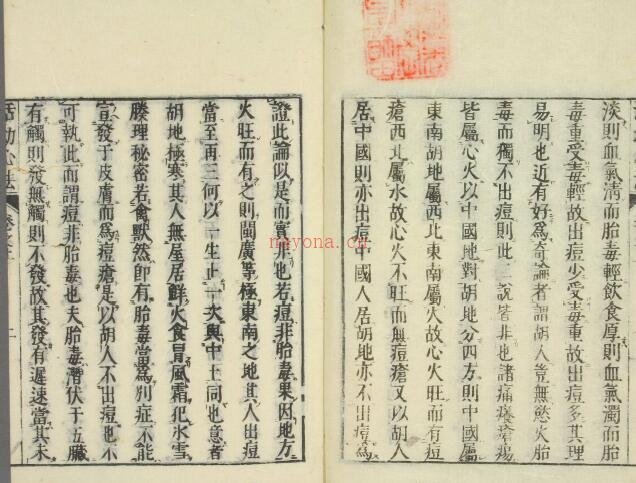 淡則血氣清而胎毒輕飲食厚則血氣濁而胎
毒重受毒輕故出痘少受毒重故出痘多其理
易明也近有好為奇論者謂胡人豈無慾火胎
毒而獨不出痘則此二說皆非也諸痛癢瘡瘍
皆屬心火以中國地對胡地分四方則中國屬
東南胡地屬西北東南屬火故心火旺而有痘
瘡西北屬水故心火不旺而無痘瘡又以胡人
居中國則亦出痘中國人居胡地亦不出痘為
證此論似是而實非也若痘非胎毒果因地方
火旺而有之則閩廣等極東南之地其人出痘
當至再三何以一生止一次與中土同也意者
胡地極寒其人無屋居鮮火食冒風霜犯冰雪
腠理秘密若禽獸然卽有胎毒當為別症不能
宣發于皮膚而為痘瘡是以胡人不出痘也不
可執此而謂痘非胎毒也夫胎毒潛伏于五臟
有觸則發無觸則不發故其發有遲速當其未
活幼心法
nayona.cn